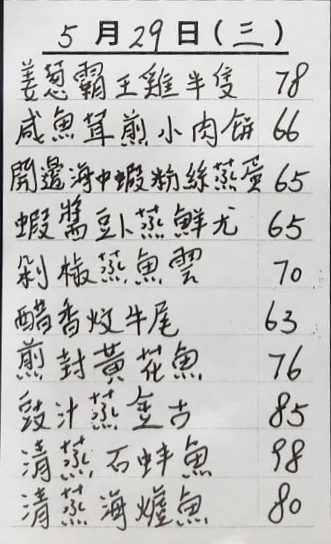 5月29日(三)
姜葱霸王雞半隻 78
咸魚茸煎小肉餅 66
開邊海中蝦粉絲蒸蛋 65
蝦醬豆卜蒸鮮尤 65
剁椒蒸魚雲 70
醋香炆牛尾 63
煎封黃花魚 76
豉汁蒸金古 85
清蒸石蚌魚 98
清蒸海爐魚 80